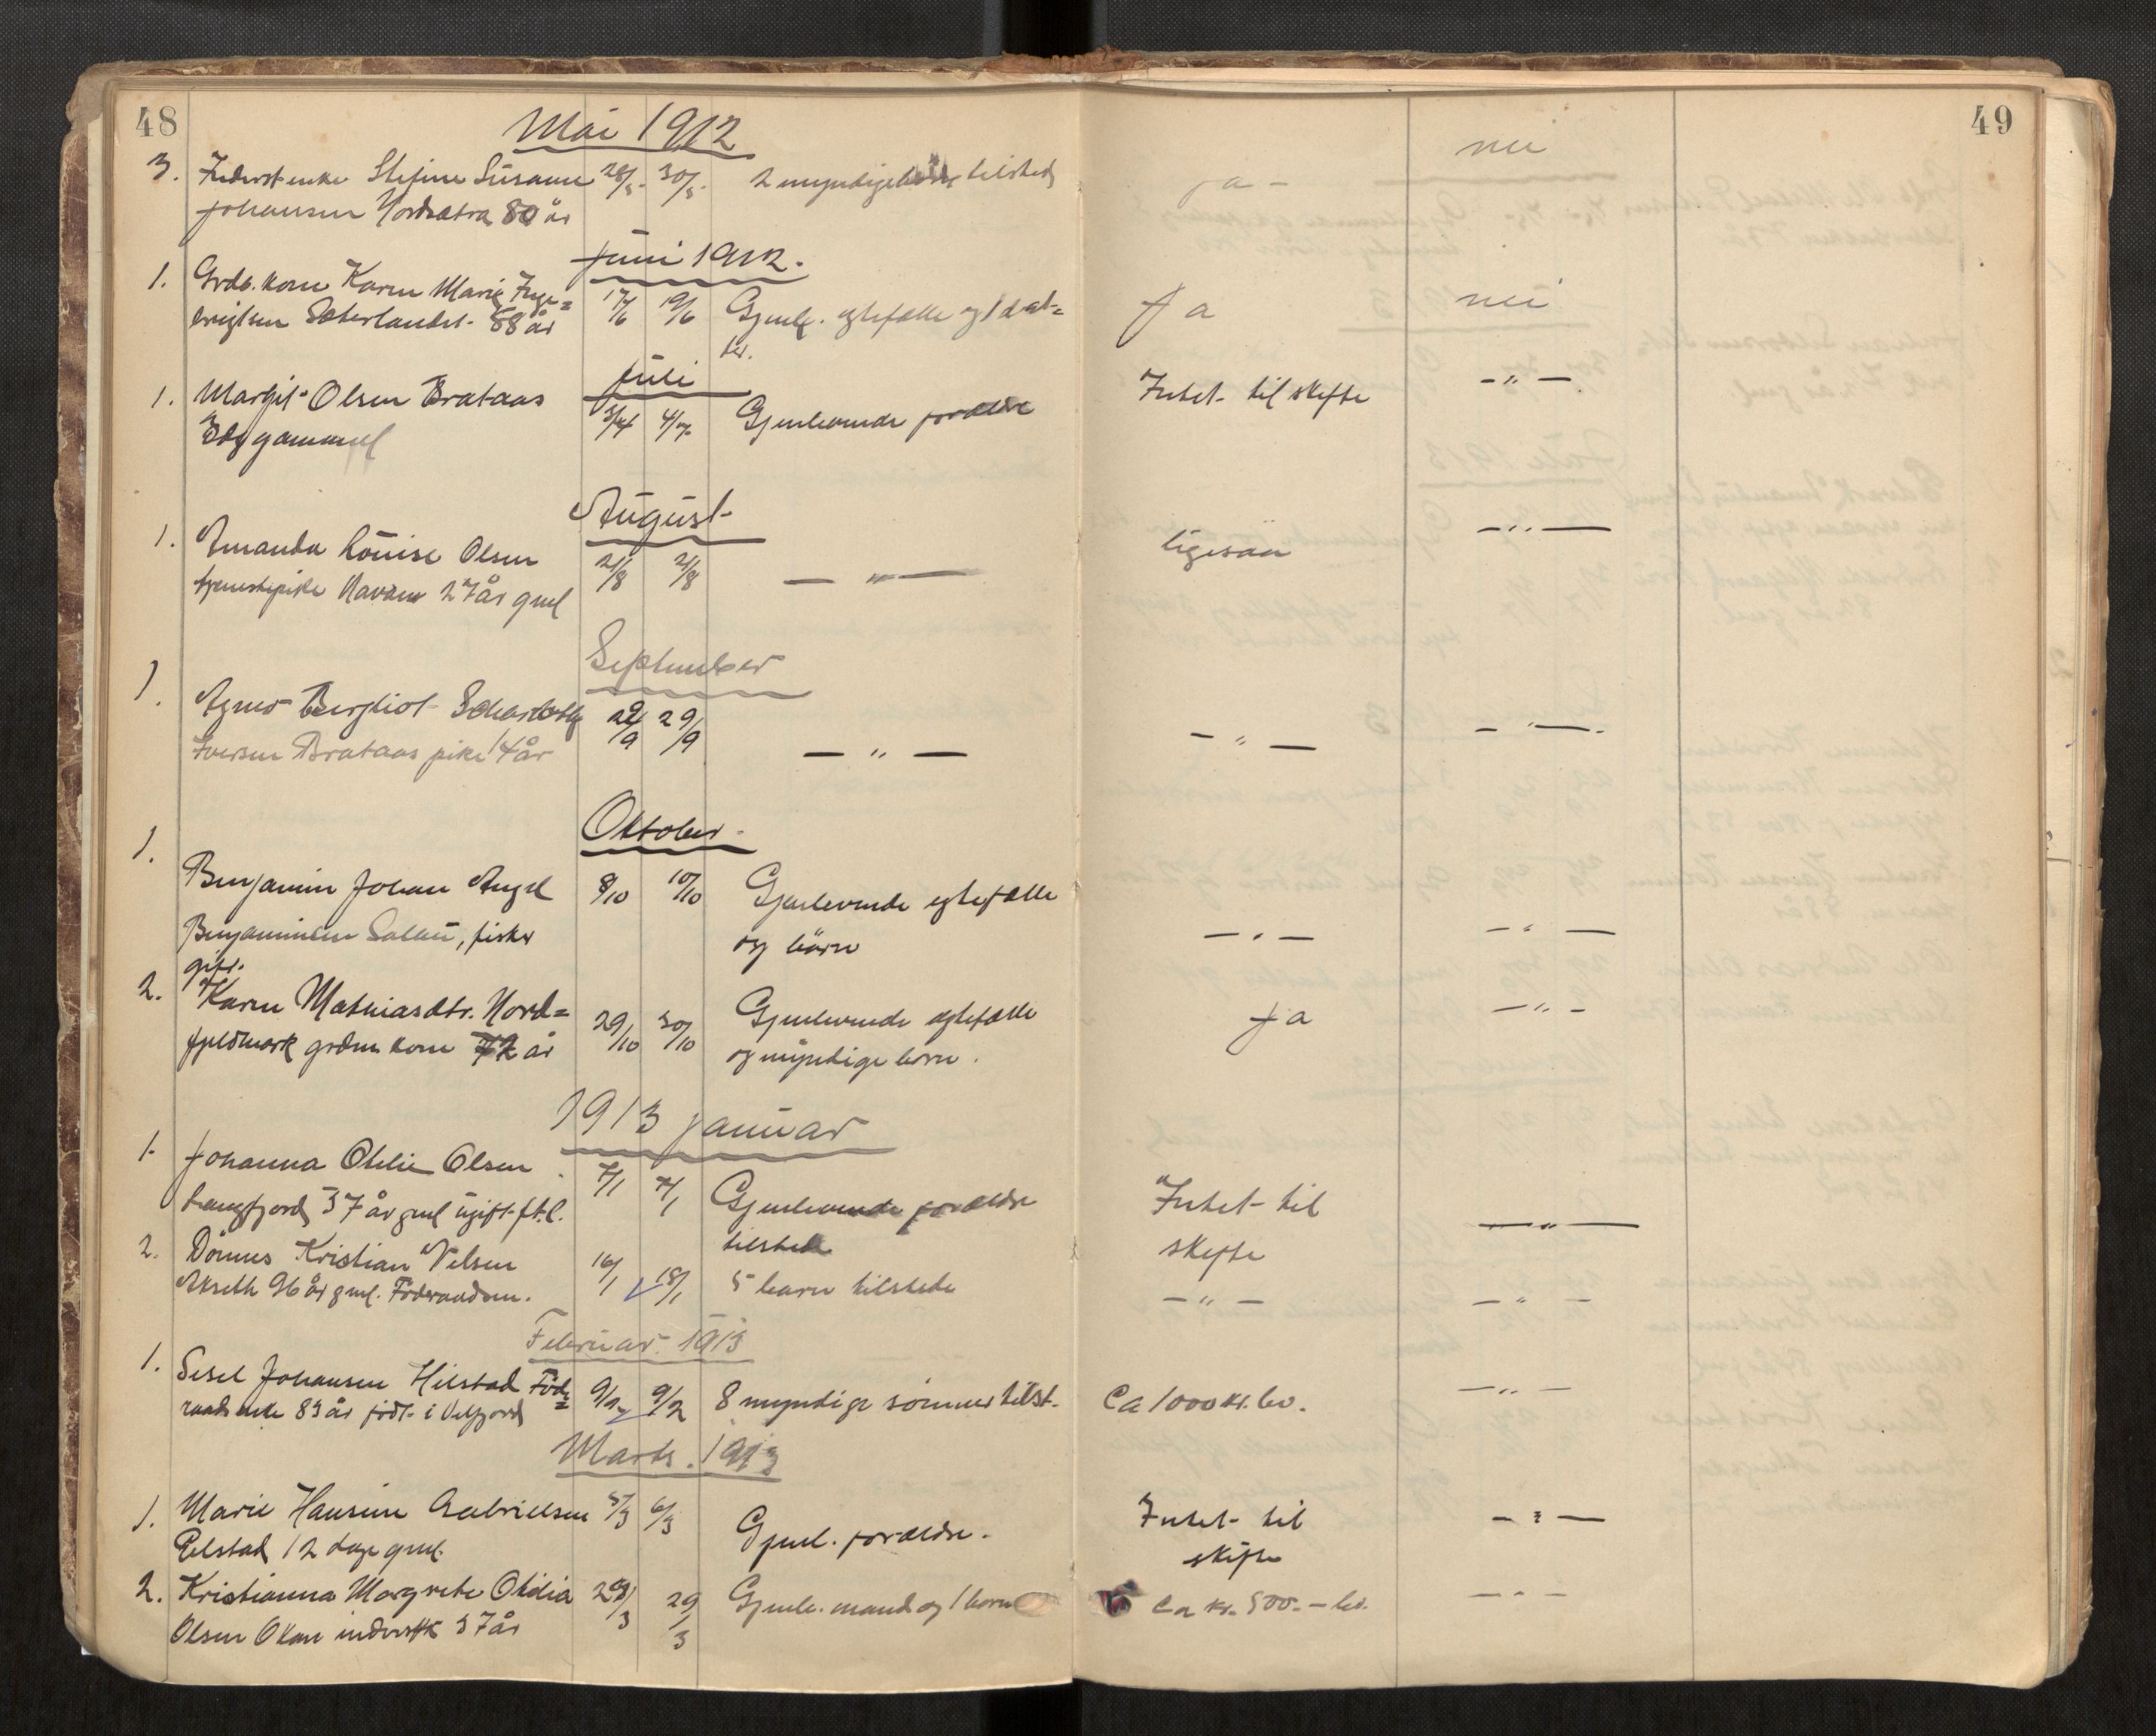 48
49
Mai 1912
3. Inderst enke Stefine Susanne 28/5 30/5 2 myndige tilsted ja - nei
Johansen Nordsætra 80 år
Juni 1912.
1. Grdb. kone Karen Marie Inge=
brigtsen Sæterlandet 88 år 17/6 19/6 Gjenl. egtefælle og 1 dat= Ja nei
ter.
Juli
1. Margit Olsen Brataas 4/7 Gjenlevende forældre Intet til skifte - " -
gammel
August
1. Amanda Louise Olsen
tjenestepike 27 år gml 2/8 2/8 - " - ligesaa - " -
September
1. Agnes Bergliot
Iversen Brataas pike 14 år 29/9 - " - - " - - " -
Oktober
1. Benjamin Johan Angel 8/10 10/10 Gjenlevende egtefælle
Benjaminsen fisker og börn - " - - " -
gift.
2. Karen Mathiasdtr. Nord= 29/10 30/10 Gjenlevende egtefælle Ja - " -
fjeldmark grdm. kone 72 år og myndige börn.
1913 januar
1. Johanna Otelie Olsen 7/1 7/1 Gjenlevende forældre Intet til - " -
Langfjord 37 år gml ugift f.t.l. tilstede skifte
2. Dönnes Kristian Nilsen 16/1 18/1 5 barn tilstede - " - - " -
96 år gml. Föderaadsm.
Februar 1913
1. Sesel Johansen Hilstad Föde=
raads enke 83 år födt i Velfjord 9/2 9/2 8 myndige sönner tilst. Ca 1000 kr. bo. - " -
Marts. 1913
1. Marie Hansine Gabrielsen 5/3 6/3 Gjenl. forældre. Intet til - " -
12 dage gml. skifte
2. Kristianna Margrete Otidia 28/3 29/3 Gjenl. mand og 1 barn Ca kr. 500.- bo. - " -
Olsen 37 år